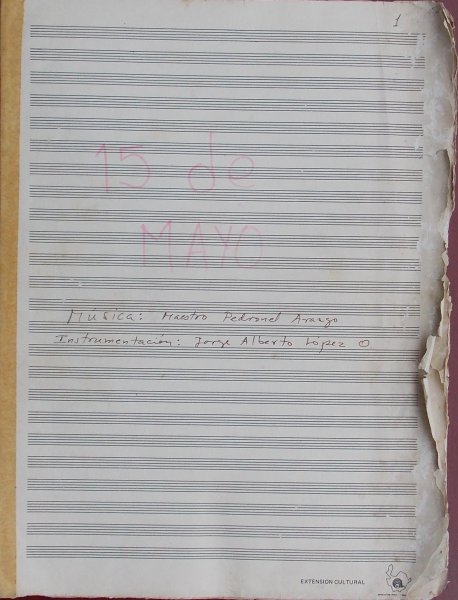 1
15 de
MAYO
Musica: Maestro Pedronel Arango
Instrumentación: Jorge Alberto López O
EXTENSION CULTURAL